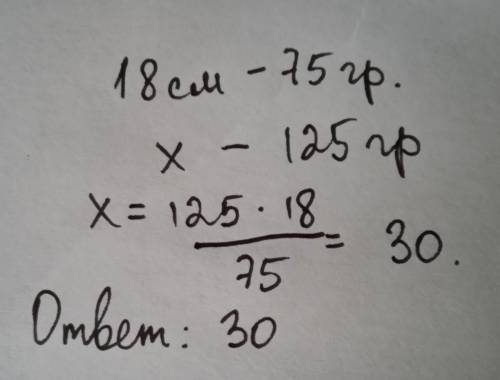 18см - 75гр.
x - 125гр
x = 125 · 18 / 75 = 30.
Ответ: 30